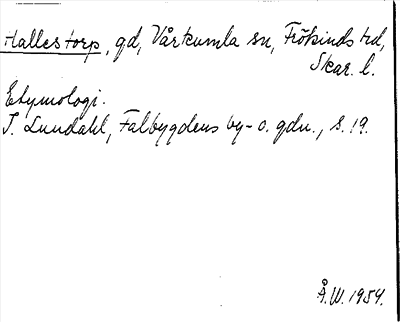 Hallestorp, gd, Vårkumla sn, Frökinds hd,
Skar. l.
Etymologi.
I. Lundahl, Falbygdens by- o. gdn., s. 19.
Å.W. 1954.